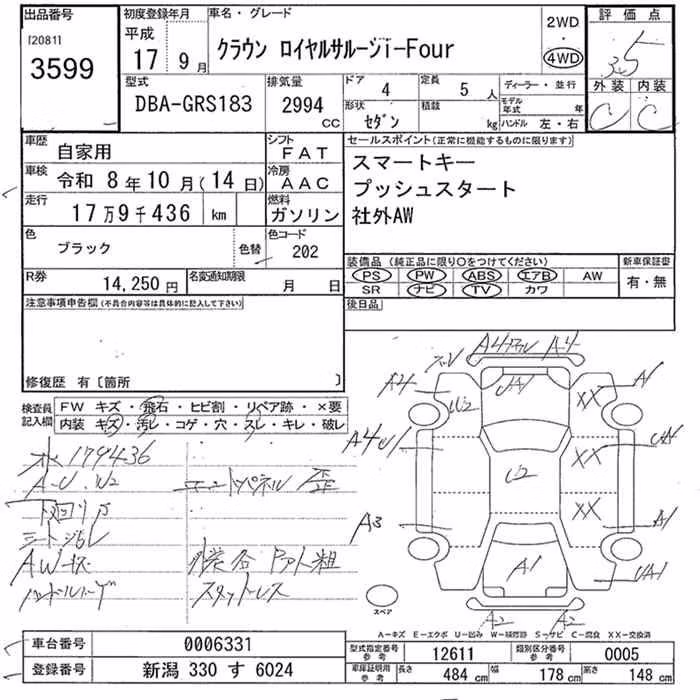 出品番号
[2081]
3599
初度登録年月
平成
17年 9月
車名・グレード
クラウン ロイヤルサルーンi-Four
2WD
・
4WD
評価点
3.5
外装 内装
C C
型式
DBA-GRS183
排気量
2994
CC
ドア
4
定員
5 人
形状
セダン
積載
kg
ディーラー・並行
モデル年式 年
ハンドル 左・右
車歴
自家用
シフト
FAT
車検
令和 8年10月(14日)
冷房
AAC
走行
17万9千436 km
燃料
ガソリン
色
ブラック
色替
色コード
202
R券
14,250円
名変通知期限
月 日
セールスポイント(正常に機能するものに限ります)
スマートキー
プッシュスタート
社外AW
装備品(純正品に限り○をつけてください)
PS PW ABS エアB AW
SR ナビ TV カワ
新車保証書
有・無
後日品
注意事項申告欄(不具合内容等は具体的に記入して下さい)
修復歴 有〔箇所 〕
検査員記入欄
FW キズ・飛石・ヒビ割・リペア跡・×要
内装 キズ・汚レ・コゲ・穴・スレ・キレ・破レ
メ 179436
A-U.W2
下廻りサ
シート汚レ
AWキズ
スタッドレス
A4 A4
A4
U2
UA1
XX
A1
A4 U1
XX
UA1
U2
A3
XX
A1
A1
UA1
A2 A2
スペア
A-キズ E-エクボ U-凹み W-補修跡 S-サビ C-腐食 XX-交換済
車台番号
0006331
登録番号
新潟 330 す 6024
型式指定番号
参考
12611
類別区分番号
参考
0005
車庫証明用
参考
長さ 484 cm 幅 178 cm 高さ 148 cm